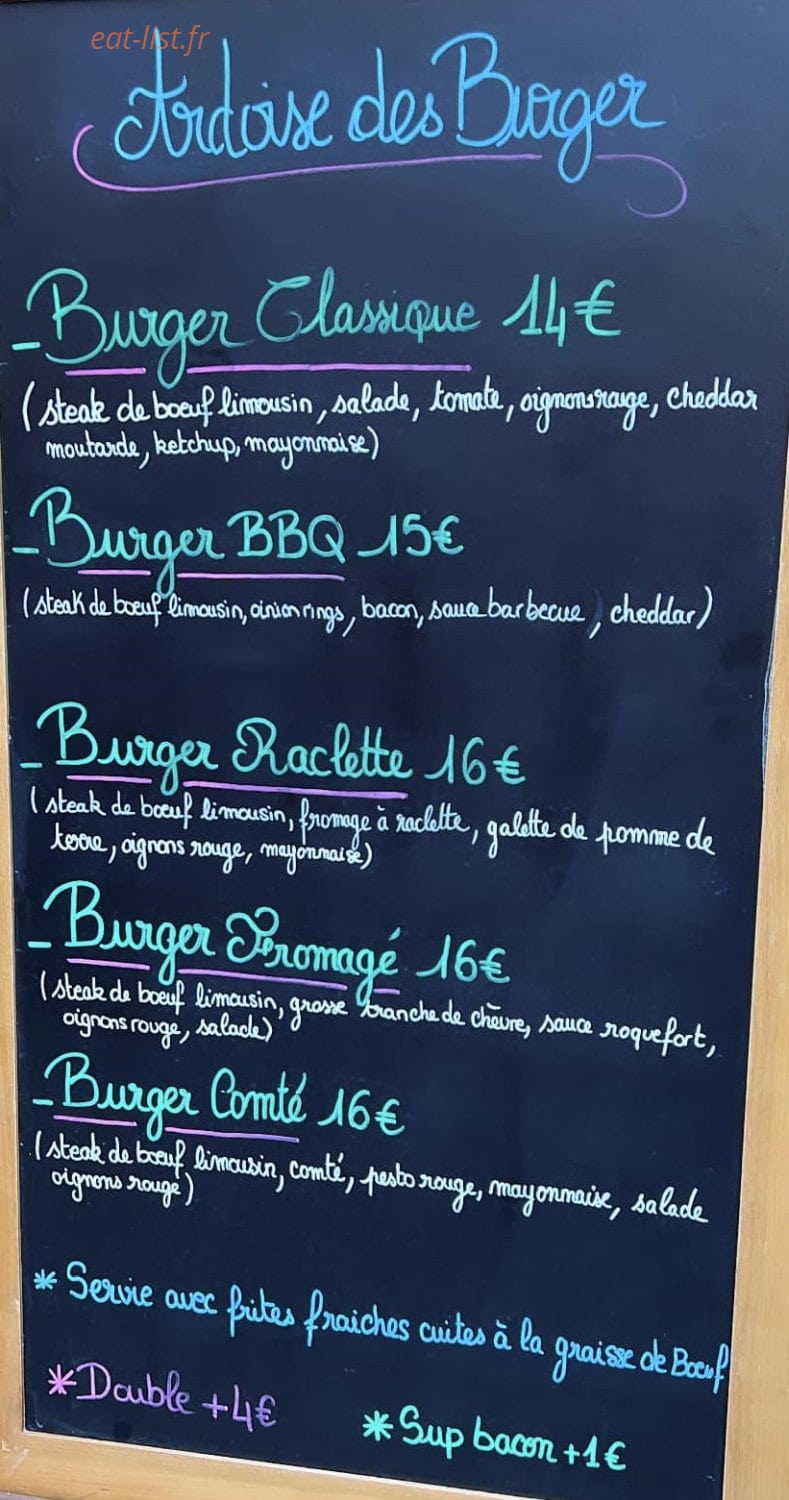 eat-list.fr
Ardoise des Burger
- Burger Classique 14€
( steak de boeuf limousin, salade, tomate, oignons rouge, cheddar
moutarde, ketchup, mayonnaise)
- Burger BBQ 15€
(steak de boeuf limousin, oinion rings, bacon, sauce barbecue, cheddar)
- Burger Raclette 16€
( steak de boeuf limousin, fromage à raclette, galette de pomme de
terre, oignons rouge, mayonnaise)
- Burger Fromagé 16€
(steak de boeuf limousin, grosse tranche de chèvre, sauce roquefort,
oignons rouge, salade)
- Burger Comté 16€
(steak de boeuf limousin, comté, pesto rouge, mayonnaise, salade
oignons rouge)
* Servie avec frites fraiches cuites à la graisse de Boeuf
* Double +4€
* Sup bacon +1€